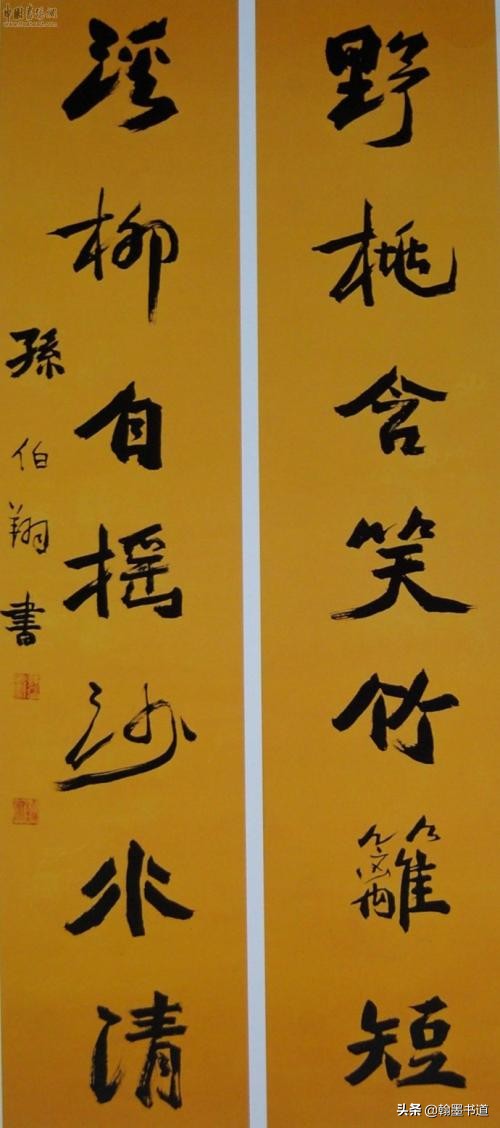 野桃含笑竹籬短
溪柳自摇沙水清
孫伯翔書
头条 @翰墨书道